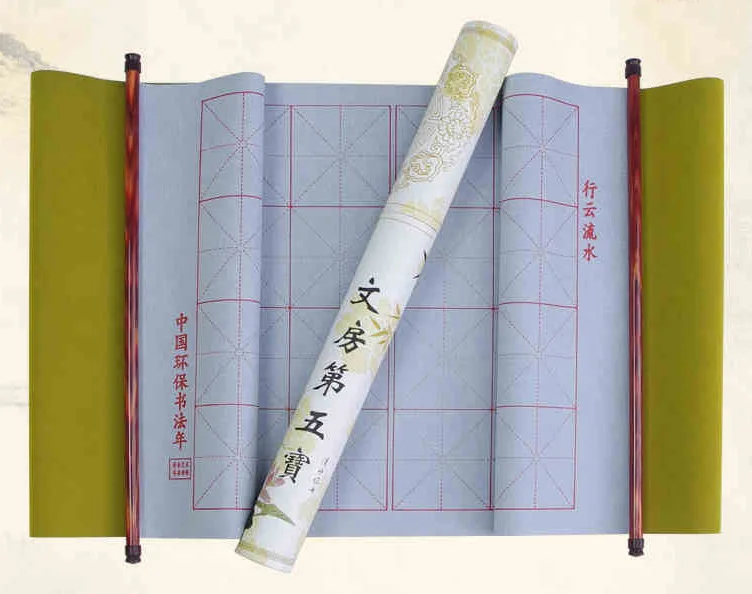 行云流水
文房第五寶
中国环保书法年